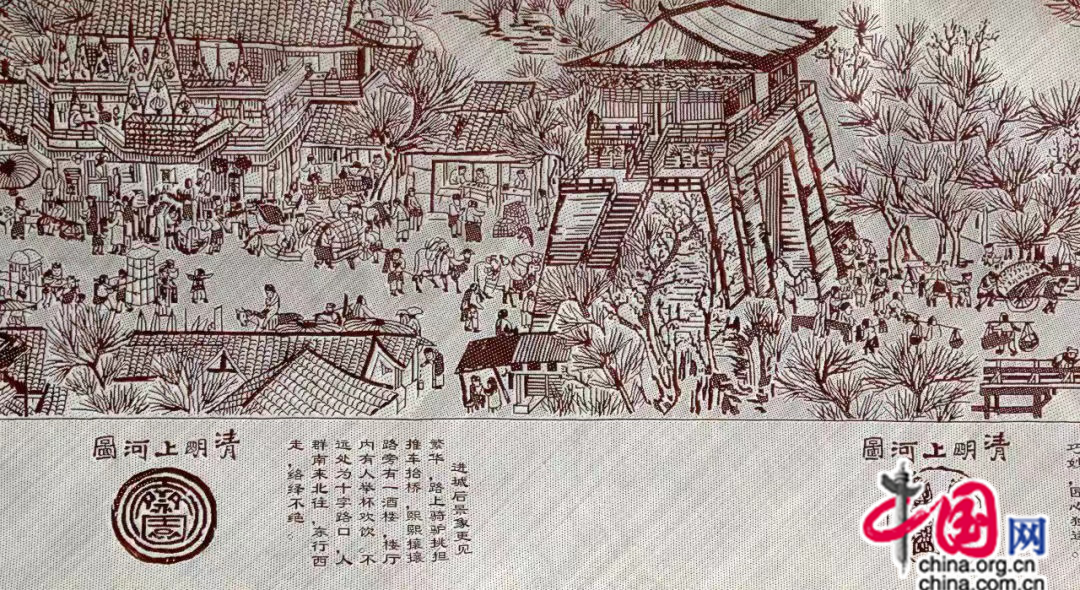 清明上河圖
进城后景象更见
繁华，路上骑驴挑担
推车抬桥，熙熙攘攘
路旁有一酒楼，楼厅
内有人举杯欢饮。不
远处为十字路口，人
群南来北往，东行西
走，络绎不绝。
清明上河圖
巧妙，匠心独运。
中国网
china.org.cn
china.com.cn